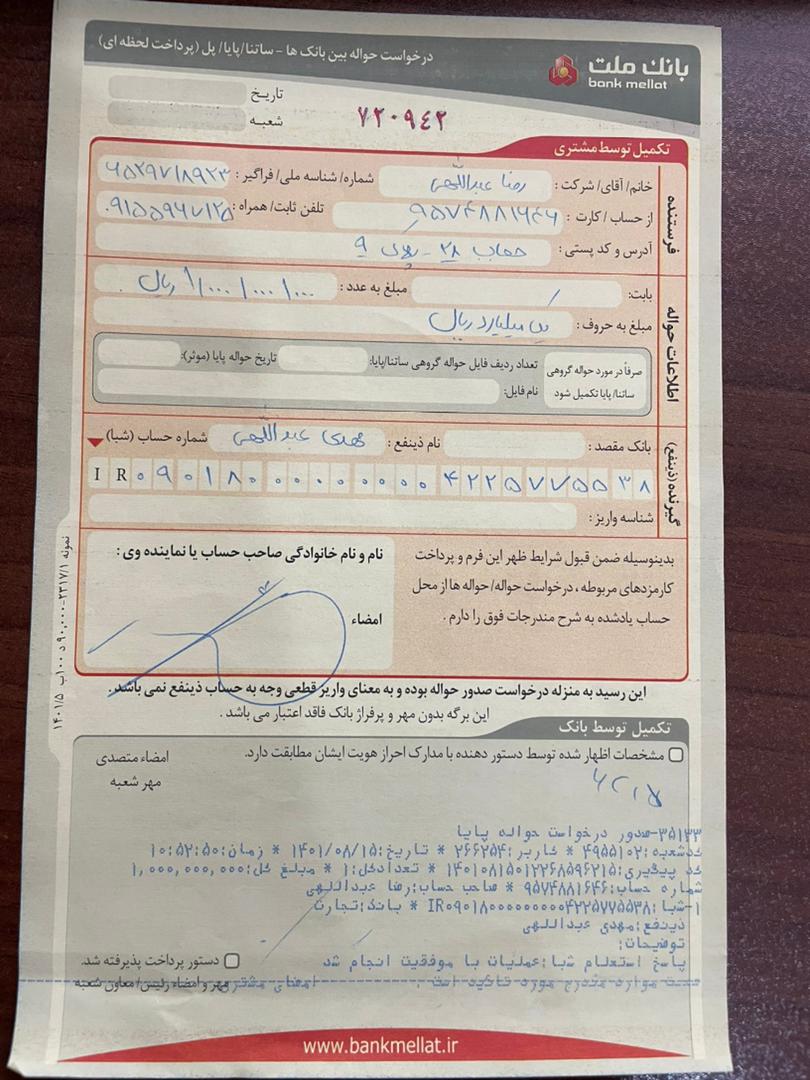 درخواست حواله بین بانک ها - ساتنا/پایا/ پل (پرداخت لحظه ای)
بانک ملت
bank mellat
تاریخ
شعبه
۷۲۰۹۴۲
تکمیل توسط مشتری
فرستنده
خانم/ آقای/ شرکت: رضا عبداللهی شماره/ شناسه ملی/ فراگیر:
از حساب/ کارت: ۹۵۷۴۸۸۱۶۴۶ تلفن ثابت/ همراه: ۰۹۱۵۵۹۶۷۱۲۵
آدرس و کد پستی: ۲۸ - پلاک ۹
اطلاعات حواله
بابت: / مبلغ به عدد: ۱/۰۰۰/۰۰۰/۰۰۰ ریال
مبلغ به حروف: یک میلیارد ریال
صرفاً در مورد حواله گروهی ساتنا/ پایا تکمیل شود
تعداد ردیف فایل حواله گروهی ساتنا/پایا: تاریخ حواله پایا (موثر):
نام فایل:
گیرنده (ذینفع)
بانک مقصد: نام ذینفع: مهدی عبداللهی شماره حساب (شبا)
IR ۰۹۰۱۸۰۰۰۰۰۰۰۰۰۴۲۲۵۷۷۵۵۳۸
شناسه واریز:
بدینوسیله ضمن قبول شرایط ظهر این فرم و پرداخت
کارمزدهای مربوطه، درخواست حواله/ حواله ها از محل
حساب یادشده به شرح مندرجات فوق را دارم.
نام و نام خانوادگی صاحب حساب یا نماینده وی:
امضاء
این رسید به منزله درخواست صدور حواله بوده و به معنای واریز قطعی وجه به حساب ذینفع نمی باشد.
این برگه بدون مهر و پرفراژ بانک فاقد اعتبار می باشد.
نمونه ۲۳۱۷/۱-۹۰،۰۰۰ د ۱۰۰ب ۱۴۰۱/۵
تکمیل توسط بانک
مشخصات اظهار شده توسط دستور دهنده با مدارک احراز هویت ایشان مطابقت دارد.
امضاء متصدی
مهر شعبه
۳۵۱۳۳-صدور درخواست حواله پایا
کدشعبه:۴۹۵۵۱۰۲ * کاربر:۲۶۶۲۵۴ * تاریخ:۱۴۰۱/۰۸/۱۵ * زمان:۱۰:۵۲:۵۰
کد پیگیری:۱۴۰۱۰۸۱۵۰۱۲۲۶۸۵۹۶۲۱۵ * تعدادکل:۱ * مبلغ کل:۱,۰۰۰,۰۰۰,۰۰۰
شماره حساب:۹۵۷۴۸۸۱۶۴۶ * صاحب حساب:رضا عبداللهی
۱-شبا:IR۰۹۰۱۸۰۰۰۰۰۰۰۰۰۴۲۲۵۷۷۵۵۳۸ * بانک:تجارت
ذینفع:مهدی عبداللهی
توضیحات:
پاسخ استعلام شبا:عملیات با موفقیت انجام شد
دستور پرداخت پذیرفته شد.
صحت موارد مندرج مورد تائید است. امضای مشتری
مهر و امضاء رئیس/ معاون شعبه
www.bankmellat.ir